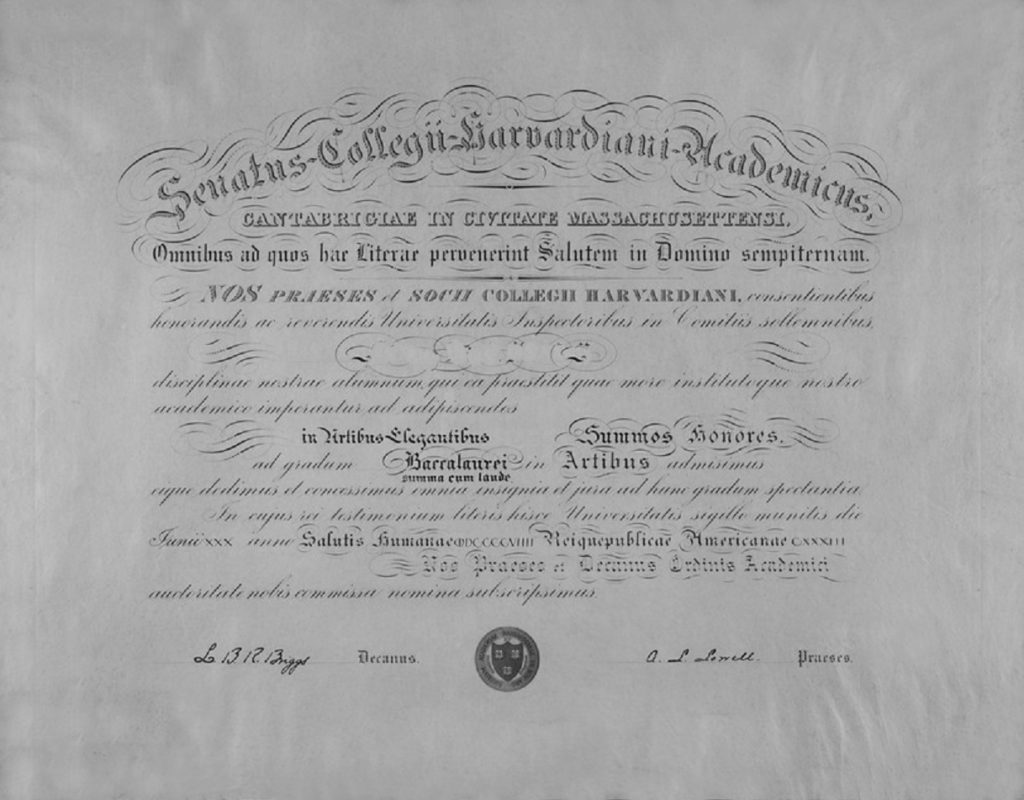 Senatus-Collegii-Harvardiani-Academicus,
CANTABRIGIAE IN CIVITATE MASSACHUSETTENSI,
Omnibus ad quos hae Literae pervenerint Salutem in Domino sempiternam.
NOS PRAESES et SOCII COLLEGII HARVARDIANI, consentientibus
honorandis ac reverendis Universitatis Inspectoribus in Comitiis sollemnibus,
disciplinae nostrae alumnum, qui ea praestitit quae more institutoque nostro
academico imperantur ad adipiscendos
in Artibus Elegantibus Summos Honores,
ad gradum Baccalaurei in Artibus admisimus
summa cum laude
eique dedimus et concessimus omnia insignia et jura ad hunc gradum spectantia.
In cujus rei testimonium literis hisce Universitatis sigillo munitis die
Junii XXX anno Salutis Humanae MDCCCCVIIII Reique publicae Americanae CXXXIII
Nos Praeses et Decanus Ordinis Academici
auctoritate nobis commissa nomina subscripsimus.
L B. R. Briggs Decanus. A. L Lowell. Praeses.